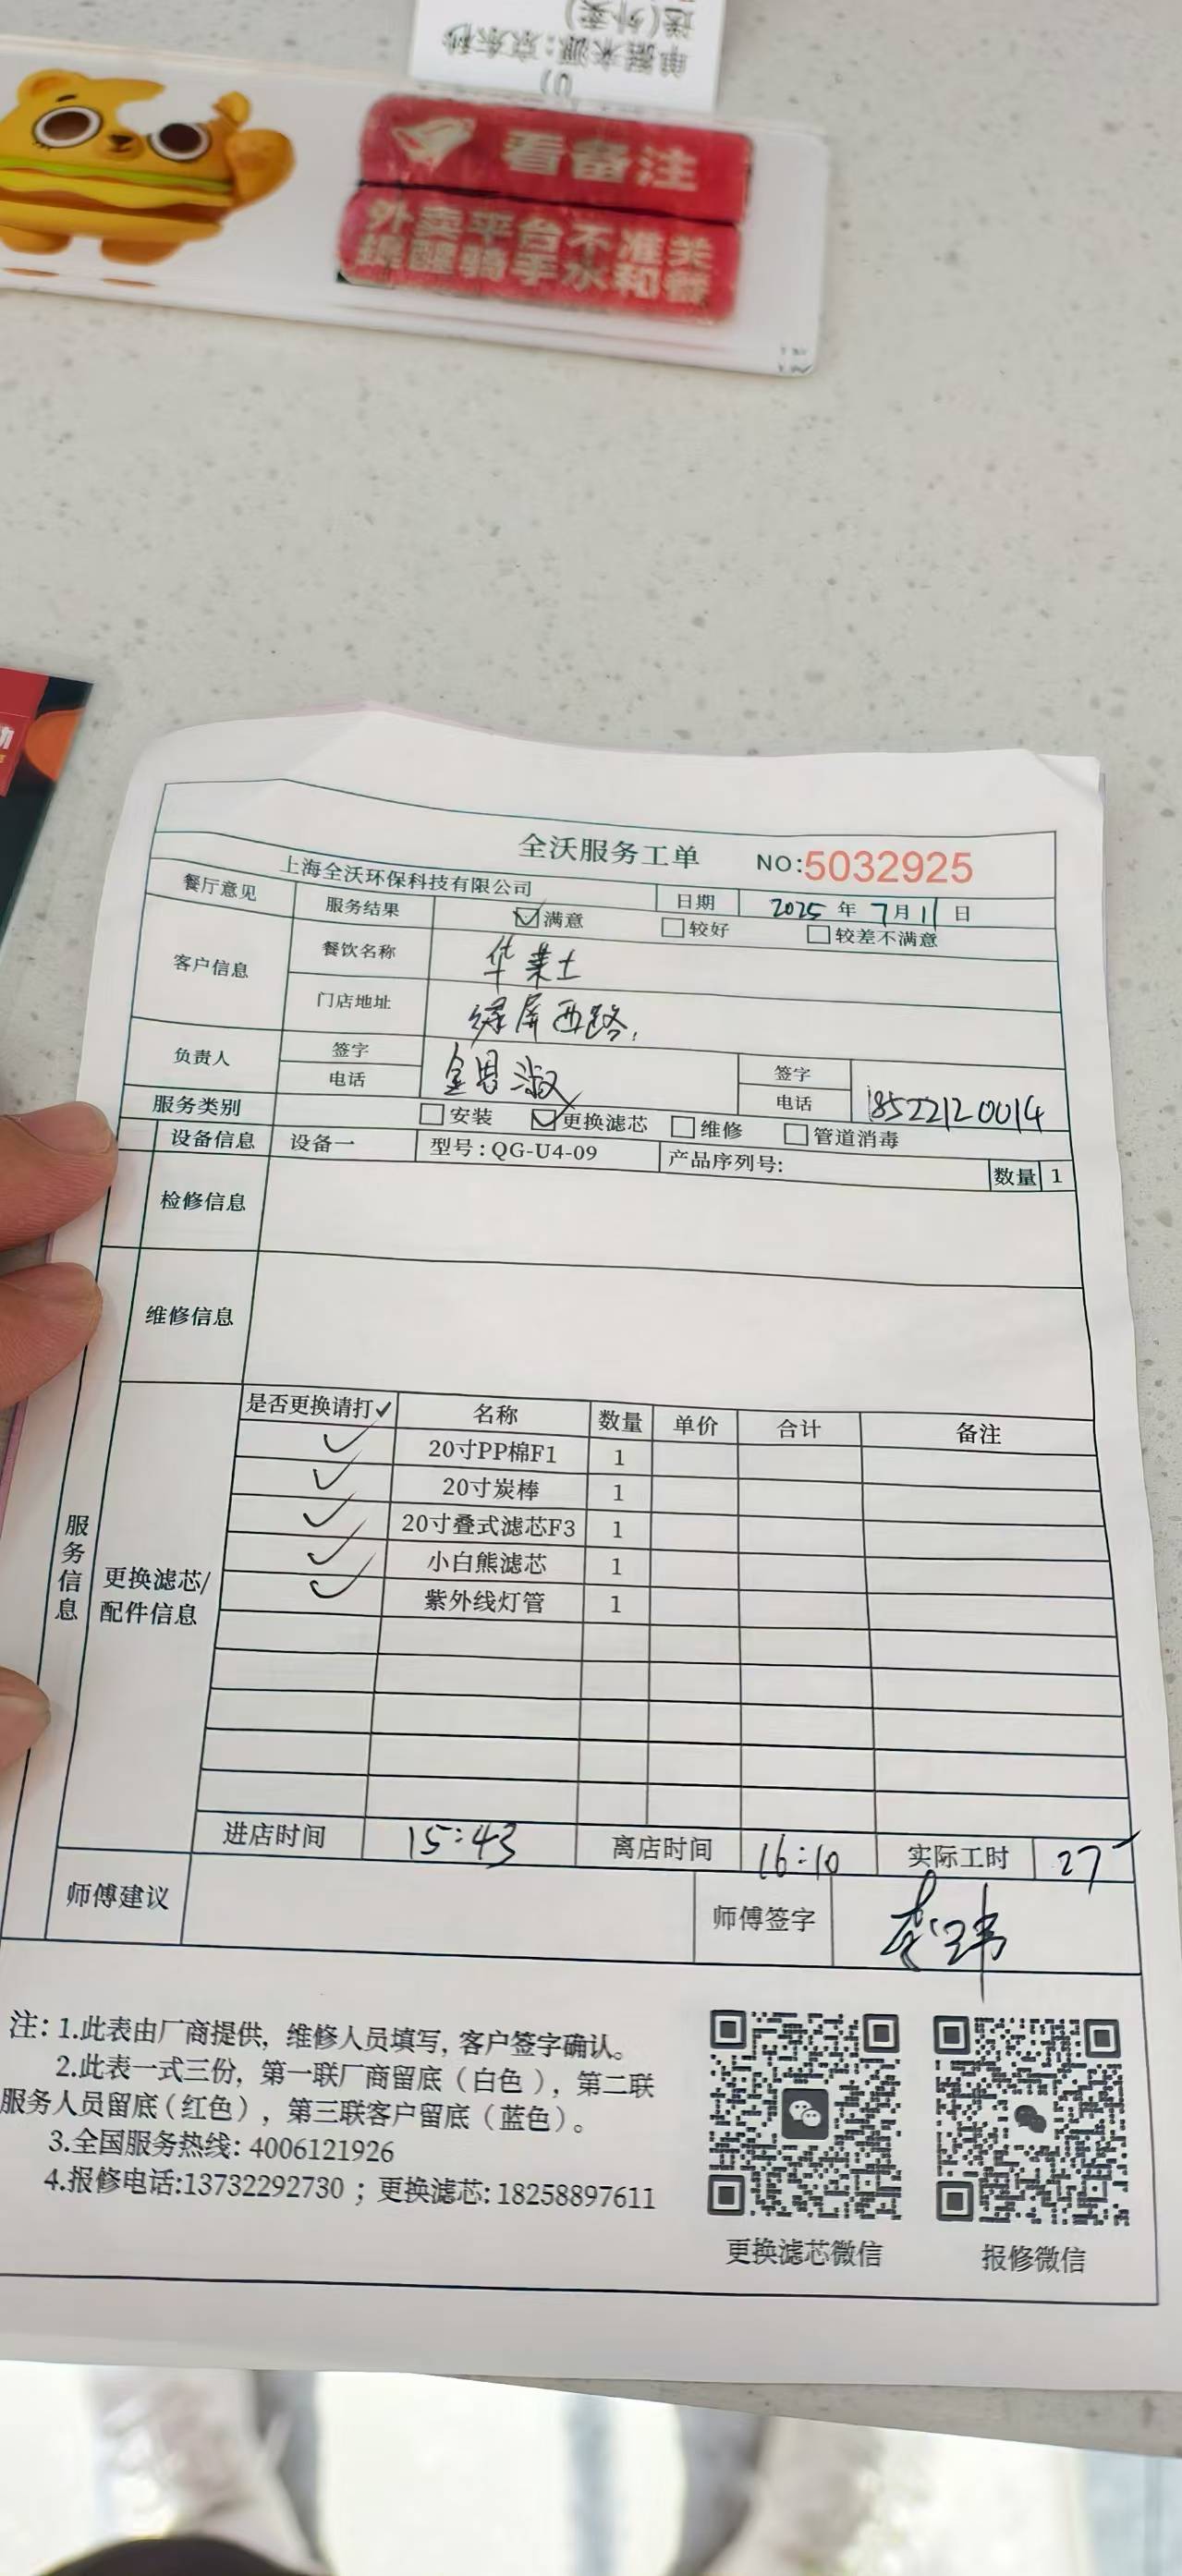 送(外卖)
单器来源:京东秒
看备注
外卖平台不准关
提醒骑手水和餐
全沃服务工单 NO:5032925
上海全沃环保科技有限公司 日期 2025 年 7 月 11 日
餐厅意见 服务结果 满意 较好 较差不满意
客户信息 餐饮名称 华莱士
门店地址 绿屏西路.
负责人 签字 金恩淑 签字
电话 电话 18522120014
服务类别 安装 更换滤芯 维修 管道消毒
设备信息 设备一 型号:QG-U4-09 产品序列号: 数量 1
检修信息
维修信息
服务信息
更换滤芯/
配件信息
是否更换请打✓ 名称 数量 单价 合计 备注
✓ 20寸PP棉F1 1
✓ 20寸炭棒 1
✓ 20寸叠式滤芯F3 1
✓ 小白熊滤芯 1
✓ 紫外线灯管 1
进店时间 15:43 离店时间 16:10 实际工时 27
师傅建议 师傅签字
注:1.此表由厂商提供,维修人员填写,客户签字确认。
2.此表一式三份,第一联厂商留底(白色),第二联
服务人员留底(红色),第三联客户留底(蓝色)。
3.全国服务热线:4006121926
4.报修电话:13732292730;更换滤芯:18258897611
更换滤芯微信 报修微信